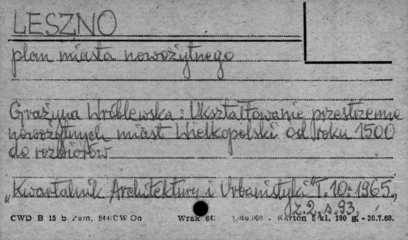 LESZNO
plan miasta nowożytnego
Grażyna Wróblewska: Ukształtowanie przestrzenne
nowożytnych miast Wielkopolski od roku 1500
do rozbiorów
„Kwartalnik Architektury i Urbanistyki" T.10: 1965,
z.2, s.93
CWD B 15 b Zam. 844/CW On Wrak 64: Karton 5 kl. 160 g, - 30.7.68.